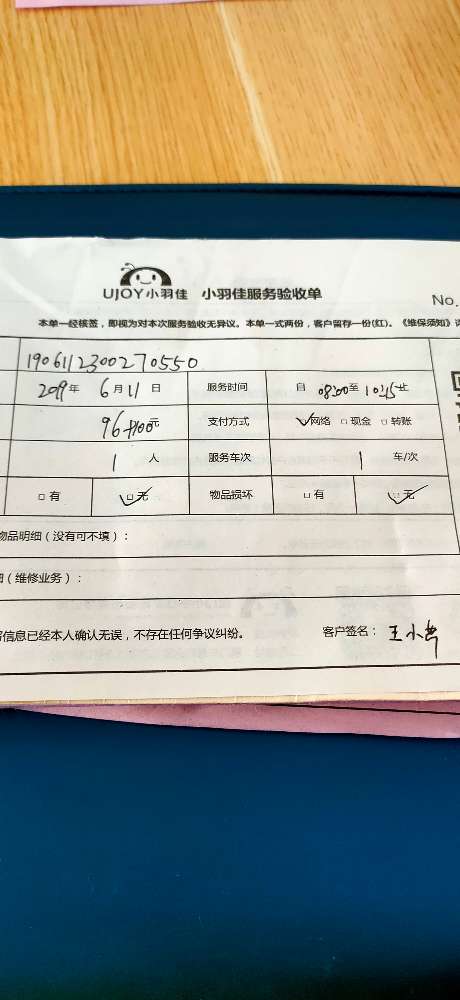 UJOY小羽佳 小羽佳服务验收单
No.
本单一经核签,即视为对本次服务验收无异议。本单一式两份,客户留存一份(红)。《维保须知》
1906112300270550
2019年 6月11日 服务时间 自 08:00至 10:45止
96+100元 支付方式 网络 □现金 □转账
1 人 服务车次 1 车/次
□有 □无 物品损坏 □有 □无
物品明细(没有可不填):
(维修业务):
信息已经本人确认无误,不存在任何争议纠纷。 客户签名:王小